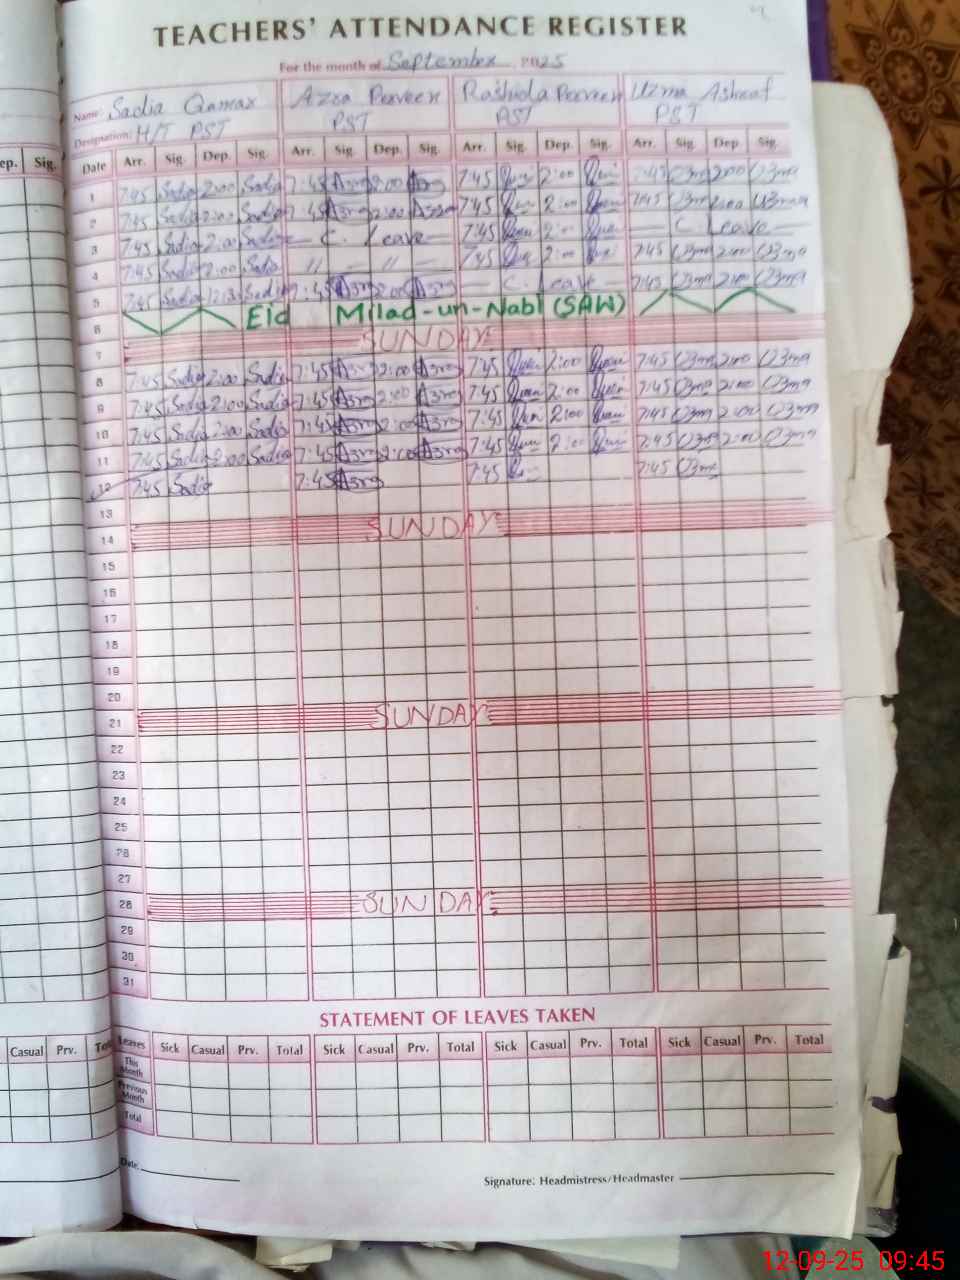 TEACHERS' ATTENDANCE REGISTER
For the month of September 2025
Name: Sadia Qamar Azra Parveen Rashida Parveen Uzma Ashraf
Designation: H/T PST PST PST PST
ep. Sig. Date Arr. Sig. Dep. Sig. Arr. Sig. Dep. Sig. Arr. Sig. Dep. Sig. Arr. Sig. Dep. Sig.
1 7:45 Sadia 2:00 Sadia 7:45 2:00 7:45 2:00 7:45 2:00
2 7:45 Sadia 2:00 Sadia 7:45 2:00 7:45 2:00 7:45 2:00
3 7:45 Sadia 2:00 Sadia C. Leave 7:45 2:00 C. Leave
4 7:45 Sadia 2:00 Sadia // - // - 7:45 2:00 7:45 2:00
5 7:45 Sadia 12:30 Sadia 7:45 2:00 C. Leave 7:45 2:00
6 Eid Milad-un-Nabi (SAW)
7 SUNDAY
8 7:45 Sadia 2:00 Sadia 7:45 2:00 7:45 2:00 7:45 2:00
9 7:45 Sadia 2:00 Sadia 7:45 2:00 7:45 2:00 7:45 2:00
10 7:45 Sadia 2:00 Sadia 7:45 2:00 7:45 2:00 7:45 2:00
11 7:45 Sadia 2:00 Sadia 7:45 2:00 7:45 2:00 7:45 2:00
12 7:45 Sadia 7:45 7:45 7:45
13
14 SUNDAY
15
16
17
18
19
20
21 SUNDAY
22
23
24
25
26
27
28 SUNDAY
29
30
31
STATEMENT OF LEAVES TAKEN
Casual Prv. Leaves Sick Casual Prv. Total Sick Casual Prv. Total Sick Casual Prv. Total Sick Casual Prv. Total
This Month
Previous Month
Total
Date.
Signature: Headmistress/Headmaster
12-09-25 09:45